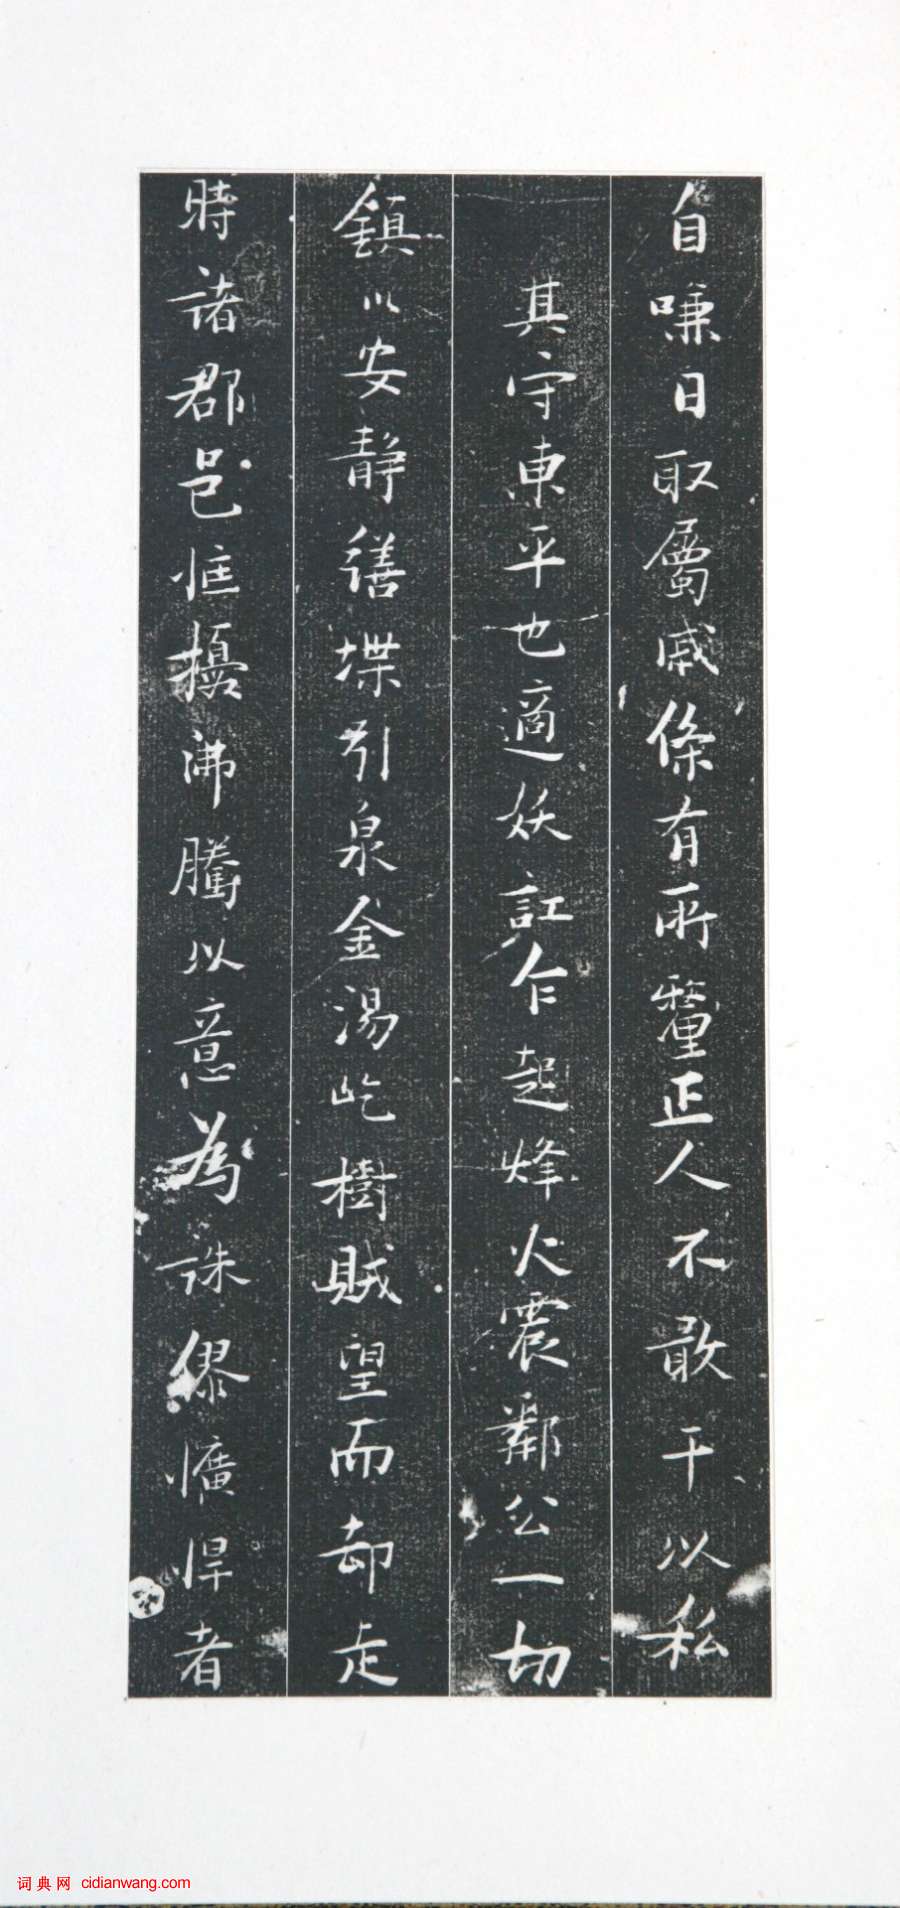 自嗛日取屬戚條有所釐正人不敢干以私
其守東平也適妖訌乍起烽火震鄰公一切
鎮以安靜繕堞引泉金湯屹樹賊望而却走
時諸郡邑恇擾沸騰以意為誅僇懭悍者
词典网 cidianwang.com